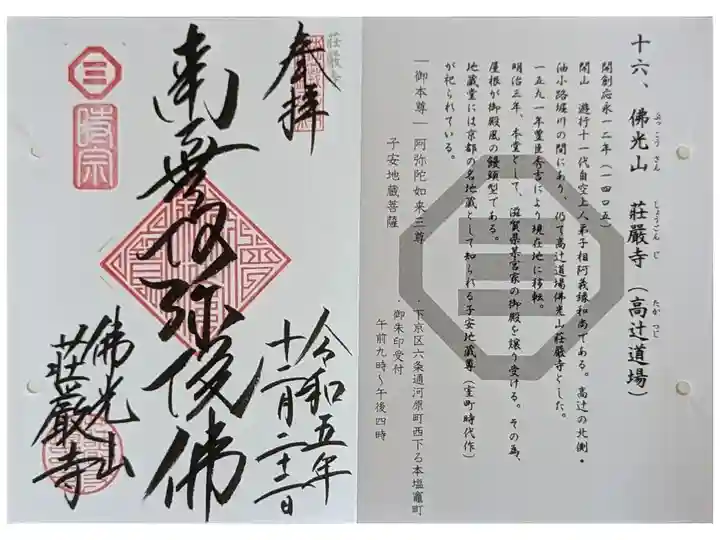 十六、佛光山 荘嚴寺（高辻道場）
ぶっこうさん しょうごんじ たかつじ
開創応永一二年（一四〇五）
開山 遊行十一代自空上人弟子相阿義縁和尚である。高辻の北側・
油小路堀川の間にあり、仍て高辻道場佛光山荘嚴寺とした。
一五九一年豊臣秀吉により現在地に移転。
明治三年、本堂として、滋賀県某宮家の御殿を譲り受ける。その為、
屋根が御殿風の饅頭型である。
地蔵堂には京都の名地蔵として知られる子安地蔵尊（室町時代作）
が祀られている。
｜御本尊｜ 阿弥陀如来三尊
子安地蔵菩薩
・下京区六条通河原町西下る本塩竈町
・御朱印受付
午前九時～午後四時
荘嚴寺
奉拝
南無阿弥陀佛
時宗
令和五年
十二月二十二日
佛光山
荘嚴寺